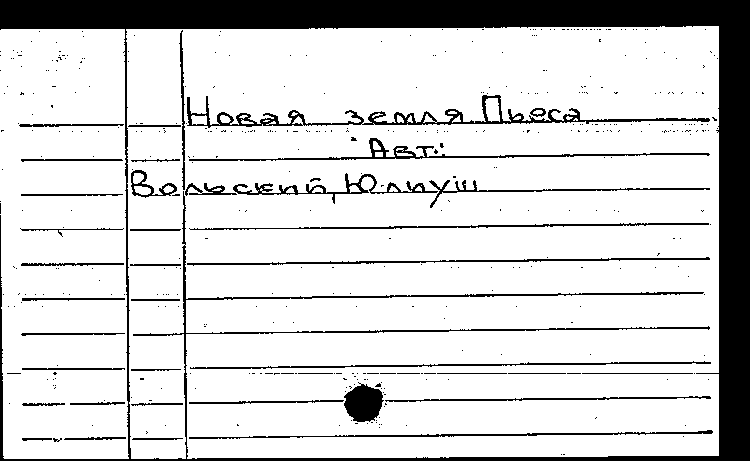 Новая земля. Пьеса
Авт.:
Вольский, Юлиуш